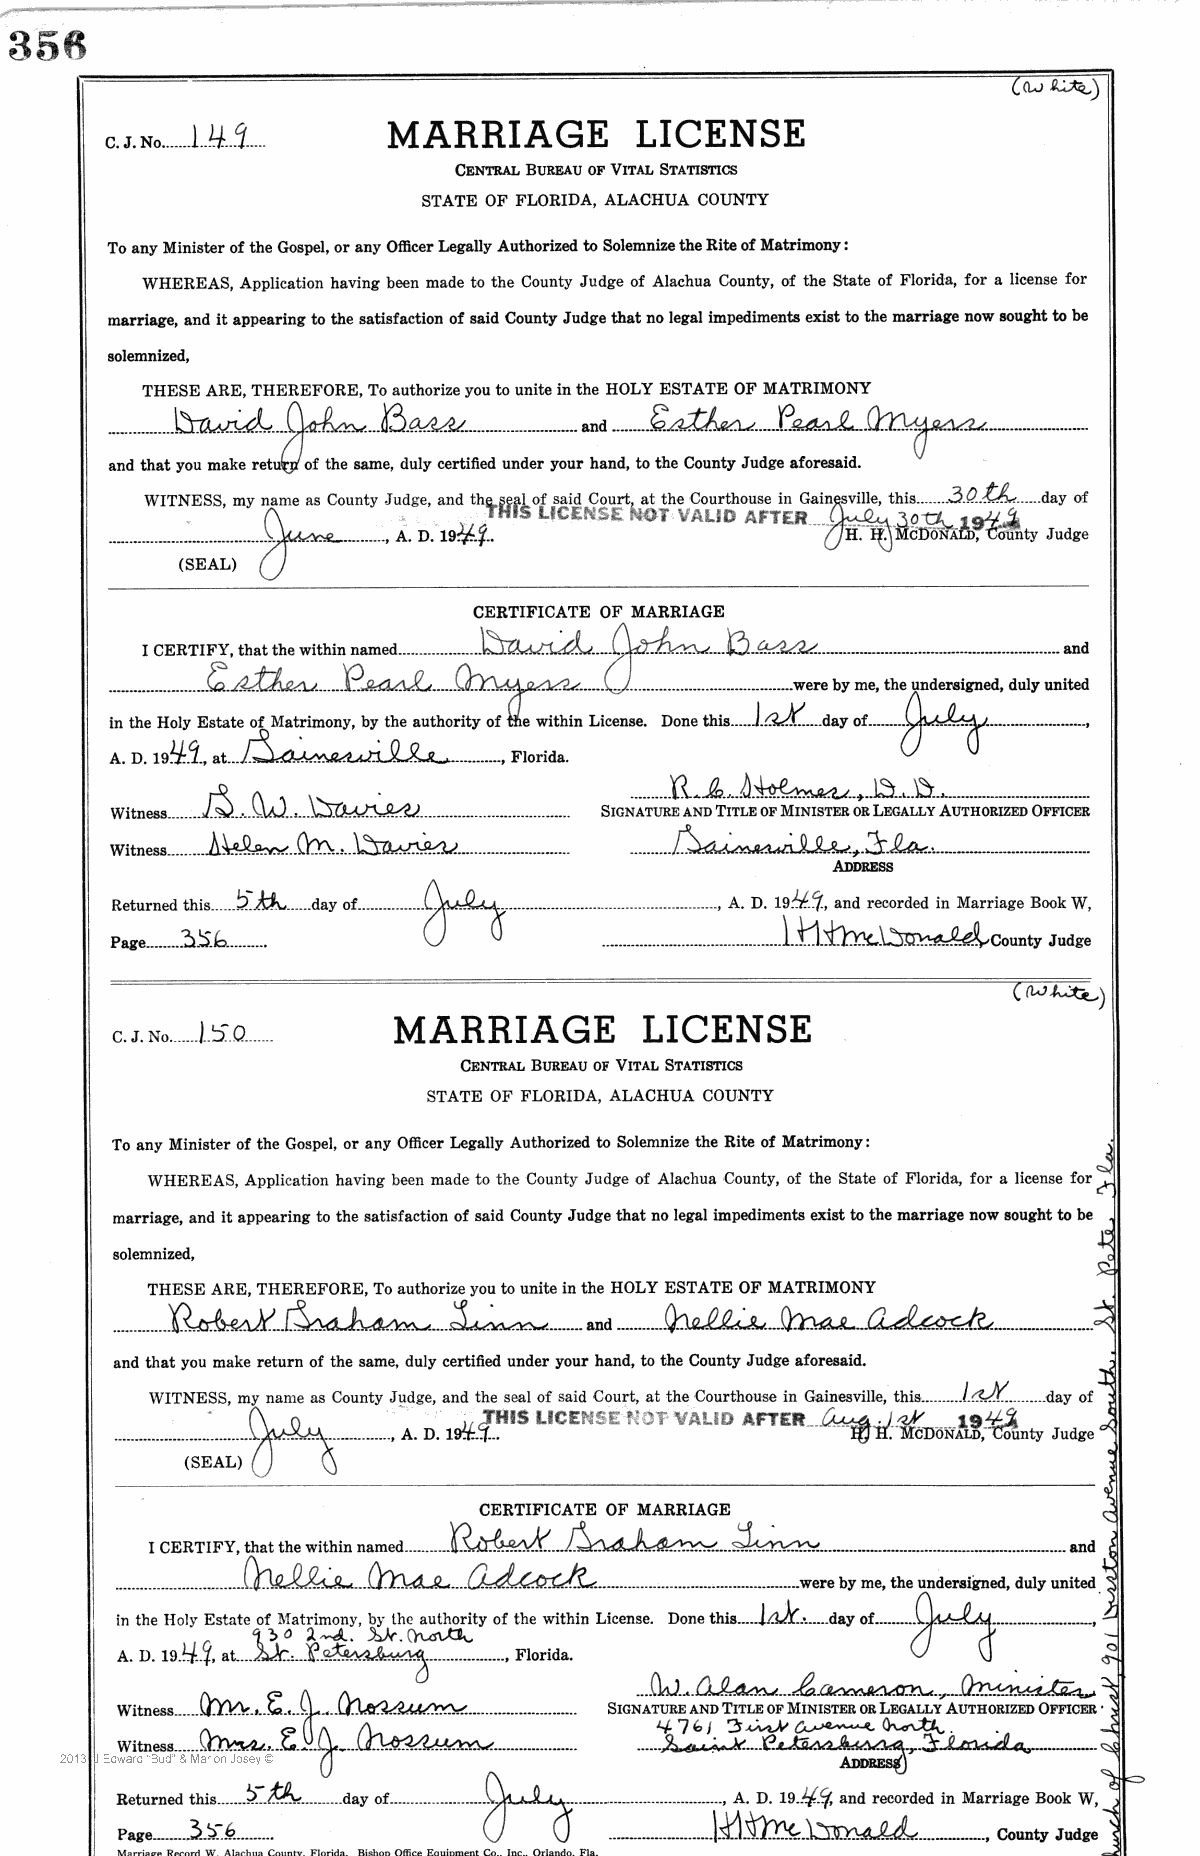 356
(White)
C. J. No. 149 MARRIAGE LICENSE
CENTRAL BUREAU OF VITAL STATISTICS
STATE OF FLORIDA, ALACHUA COUNTY
To any Minister of the Gospel, or any Officer Legally Authorized to Solemnize the Rite of Matrimony:
WHEREAS, Application having been made to the County Judge of Alachua County, of the State of Florida, for a license for
marriage, and it appearing to the satisfaction of said County Judge that no legal impediments exist to the marriage now sought to be
solemnized,
THESE ARE, THEREFORE, To authorize you to unite in the HOLY ESTATE OF MATRIMONY
David John Bass and Esther Pearl Myers
and that you make return of the same, duly certified under your hand, to the County Judge aforesaid.
WITNESS, my name as County Judge, and the seal of said Court, at the Courthouse in Gainesville, this 30th day of
THIS LICENSE NOT VALID AFTER July 30th 1949
June, A. D. 1949. H. H. McDONALD, County Judge
(SEAL)
CERTIFICATE OF MARRIAGE
I CERTIFY, that the within named David John Bass and
Esther Pearl Myers were by me, the undersigned, duly united
in the Holy Estate of Matrimony, by the authority of the within License. Done this 1st day of July,
A. D. 1949, at Gainesville, Florida.
R. C. Holmes, D. D.
Witness G. W. Davies SIGNATURE AND TITLE OF MINISTER OR LEGALLY AUTHORIZED OFFICER
Witness Helen M. Davies Gainesville, Fla.
ADDRESS
Returned this 5th day of July, A. D. 1949, and recorded in Marriage Book W,
Page 356 HH McDonald County Judge
(White)
C. J. No. 150 MARRIAGE LICENSE
CENTRAL BUREAU OF VITAL STATISTICS
STATE OF FLORIDA, ALACHUA COUNTY
To any Minister of the Gospel, or any Officer Legally Authorized to Solemnize the Rite of Matrimony:
WHEREAS, Application having been made to the County Judge of Alachua County, of the State of Florida, for a license for
marriage, and it appearing to the satisfaction of said County Judge that no legal impediments exist to the marriage now sought to be
solemnized,
THESE ARE, THEREFORE, To authorize you to unite in the HOLY ESTATE OF MATRIMONY
Robert Graham Linn and Nellie Mae Adcock
and that you make return of the same, duly certified under your hand, to the County Judge aforesaid.
WITNESS, my name as County Judge, and the seal of said Court, at the Courthouse in Gainesville, this 1st day of
THIS LICENSE NOT VALID AFTER Aug. 1st 1949
July, A. D. 1949. H. H. McDONALD, County Judge
(SEAL)
CERTIFICATE OF MARRIAGE
I CERTIFY, that the within named Robert Graham Linn and
Nellie Mae Adcock were by me, the undersigned, duly united
in the Holy Estate of Matrimony, by the authority of the within License. Done this 1st. day of July,
930 2nd. St. North
A. D. 1949, at St. Petersburg, Florida.
W. Alan Cameron, Minister
Witness Mr. E. J. Nossum SIGNATURE AND TITLE OF MINISTER OR LEGALLY AUTHORIZED OFFICER
4761 First Avenue North
Witness Mrs. E. J. Nossum Saint Petersburg, Florida
2013 J Edward "Bud" & Marion Josey © ADDRESS
Returned this 5th day of July, A. D. 1949, and recorded in Marriage Book W,
Page 356 HH McDonald, County Judge
Marriage Record W, Alachua County, Florida. Bishop Office Equipment Co., Inc., Orlando, Fla.
of Christ, 901 Avenue South, St. Pete, Fla.